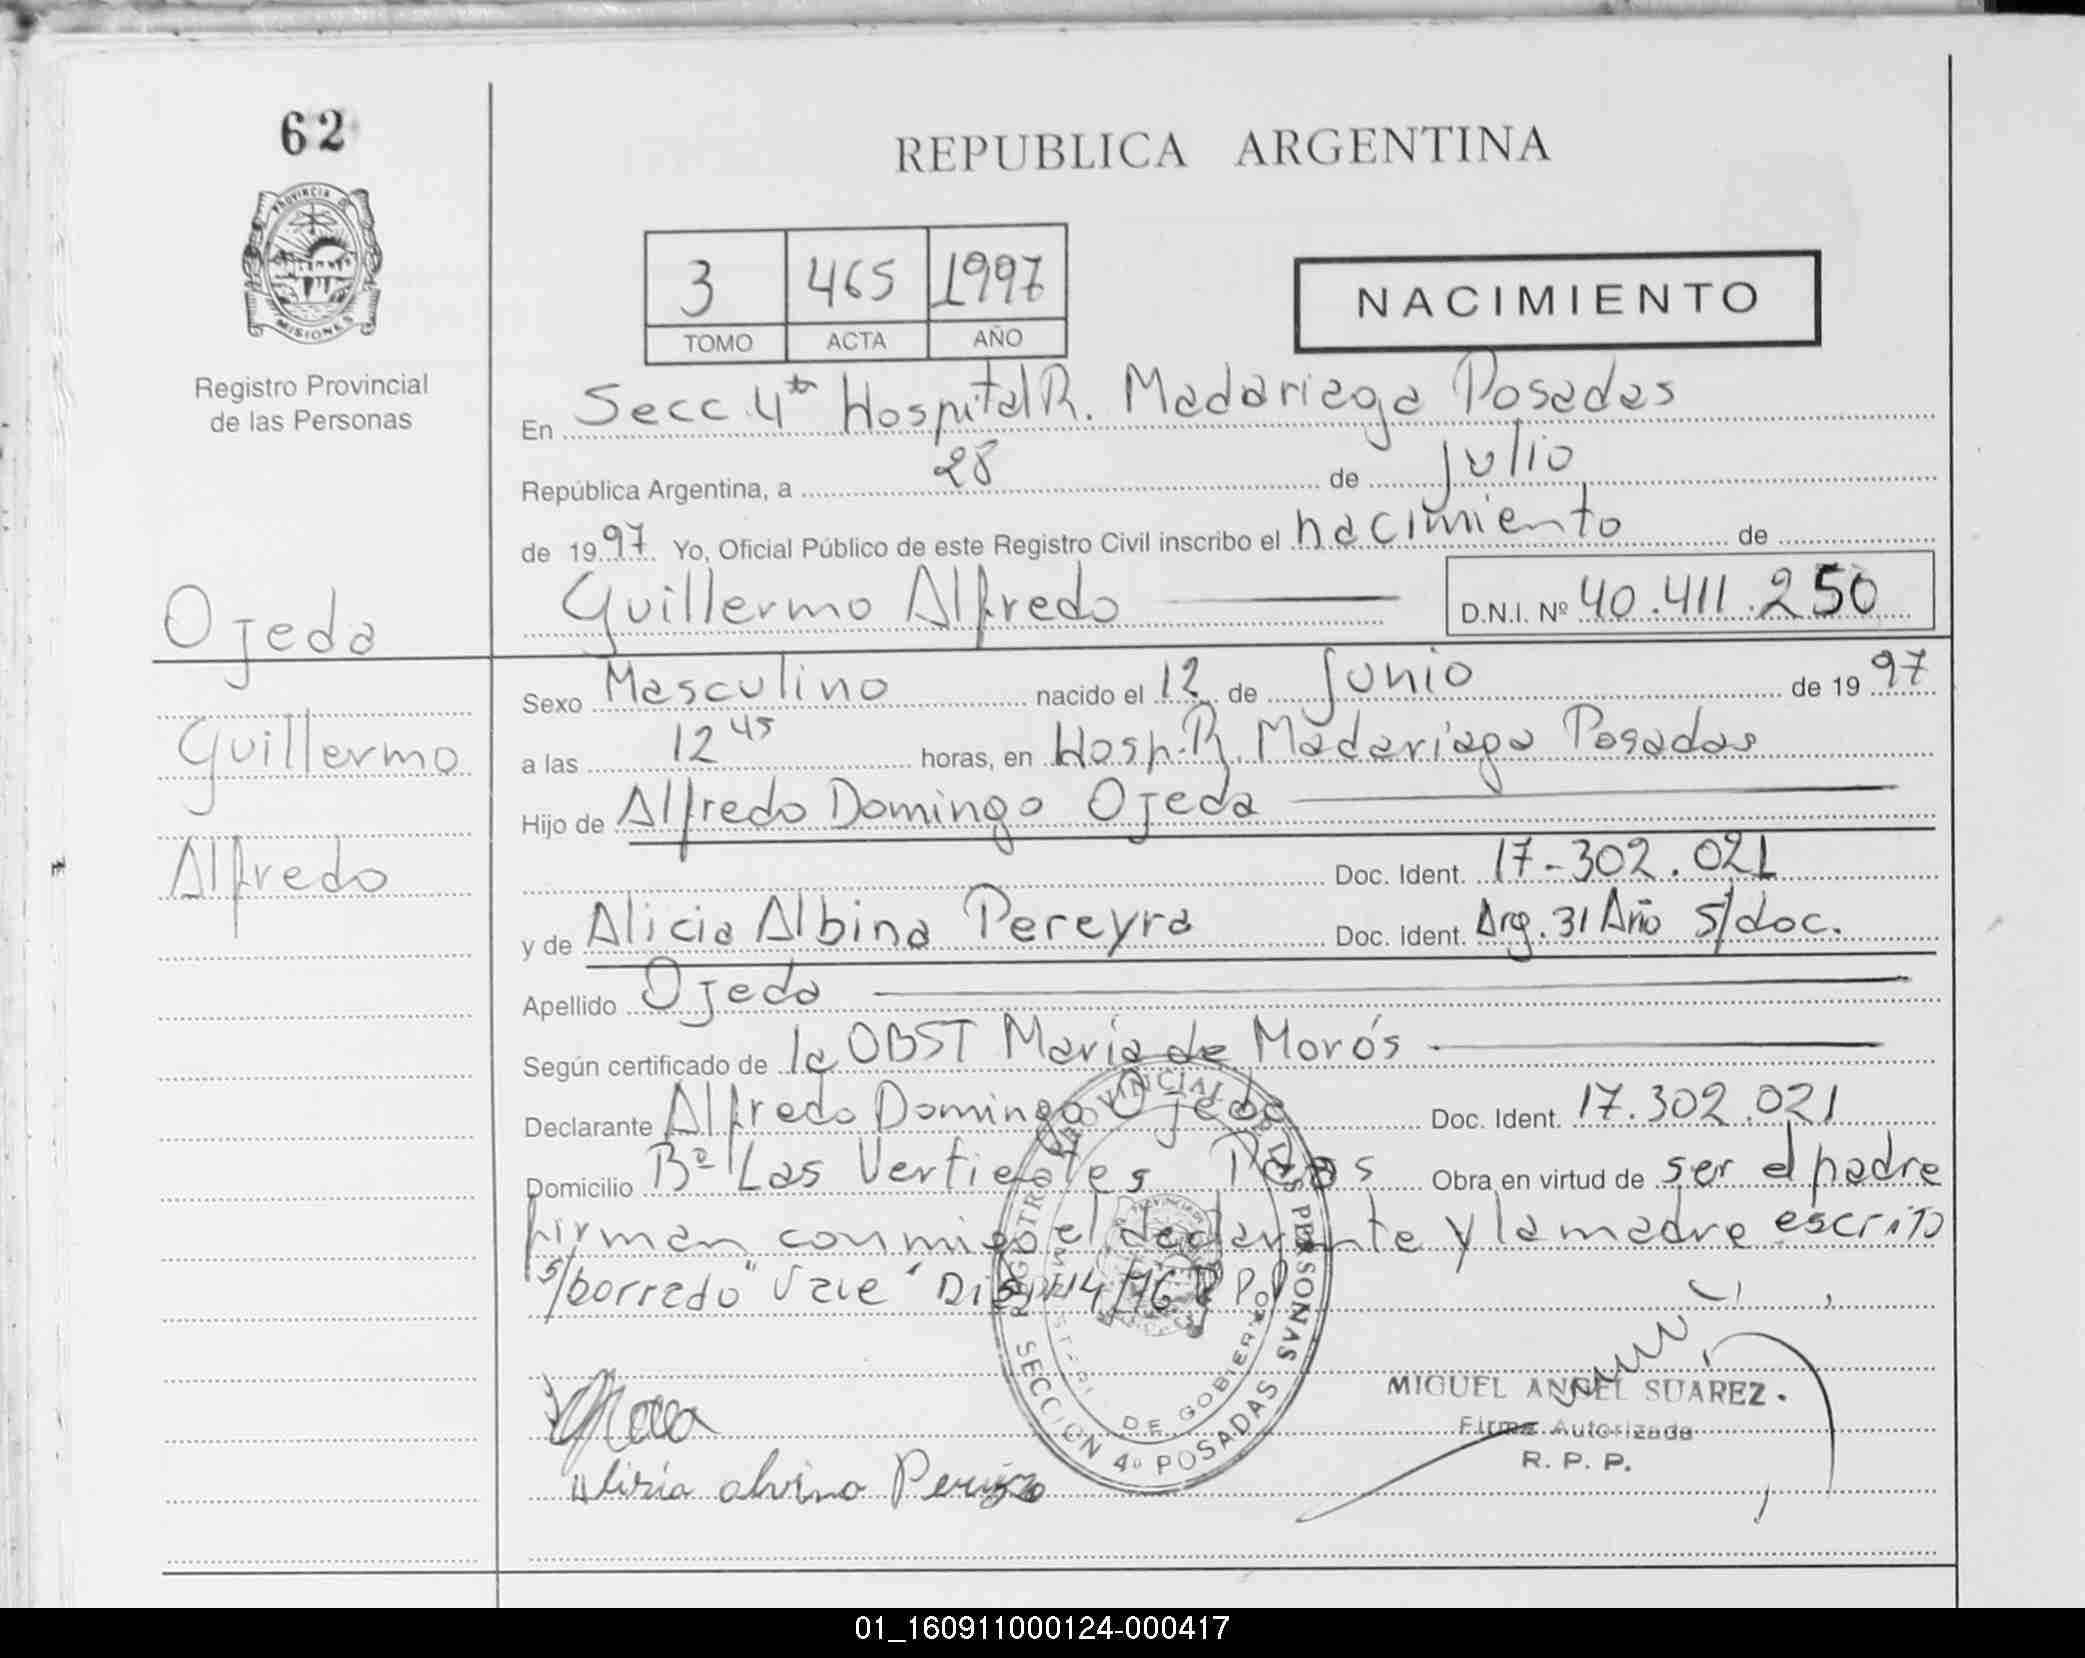 62
PROVINCIA DE
MISIONES
Registro Provincial
de las Personas
Ojeda
Guillermo
Alfredo
REPUBLICA ARGENTINA
3 465 1997
TOMO ACTA AÑO
NACIMIENTO
En Secc. 4ta Hospital R. Madariaga Posadas
República Argentina, a 28 de Julio
de 1997 Yo, Oficial Público de este Registro Civil inscribo el nacimiento de
Guillermo Alfredo D.N.I. Nº 40.411.250
Sexo Masculino nacido el 12 de Junio de 1997
a las 12 45 horas, en Hosp. R. Madariaga Posadas
Hijo de Alfredo Domingo Ojeda
Doc. Ident. 17-302.021
y de Alicia Albina Pereyra Doc. Ident. Arg. 31 Año s/doc.
Apellido Ojeda
Según certificado de la OBST María de Morós
Declarante Alfredo Domingo Ojeda Doc. Ident. 17.302.021
Domicilio Bº Las Vertientes Pdas Obra en virtud de ser el padre
firman conmigo el declarante y la madre escrito
s/borrado "Vale" Disp 14/76 R P P
REGISTRO PROVINCIAL DE LAS PERSONAS
MINISTERIO DE GOBIERNO
SECCION 4º POSADAS
MIGUEL ANGEL SUAREZ.
Firma Autorizada
R. P. P.
01_160911000124-000417